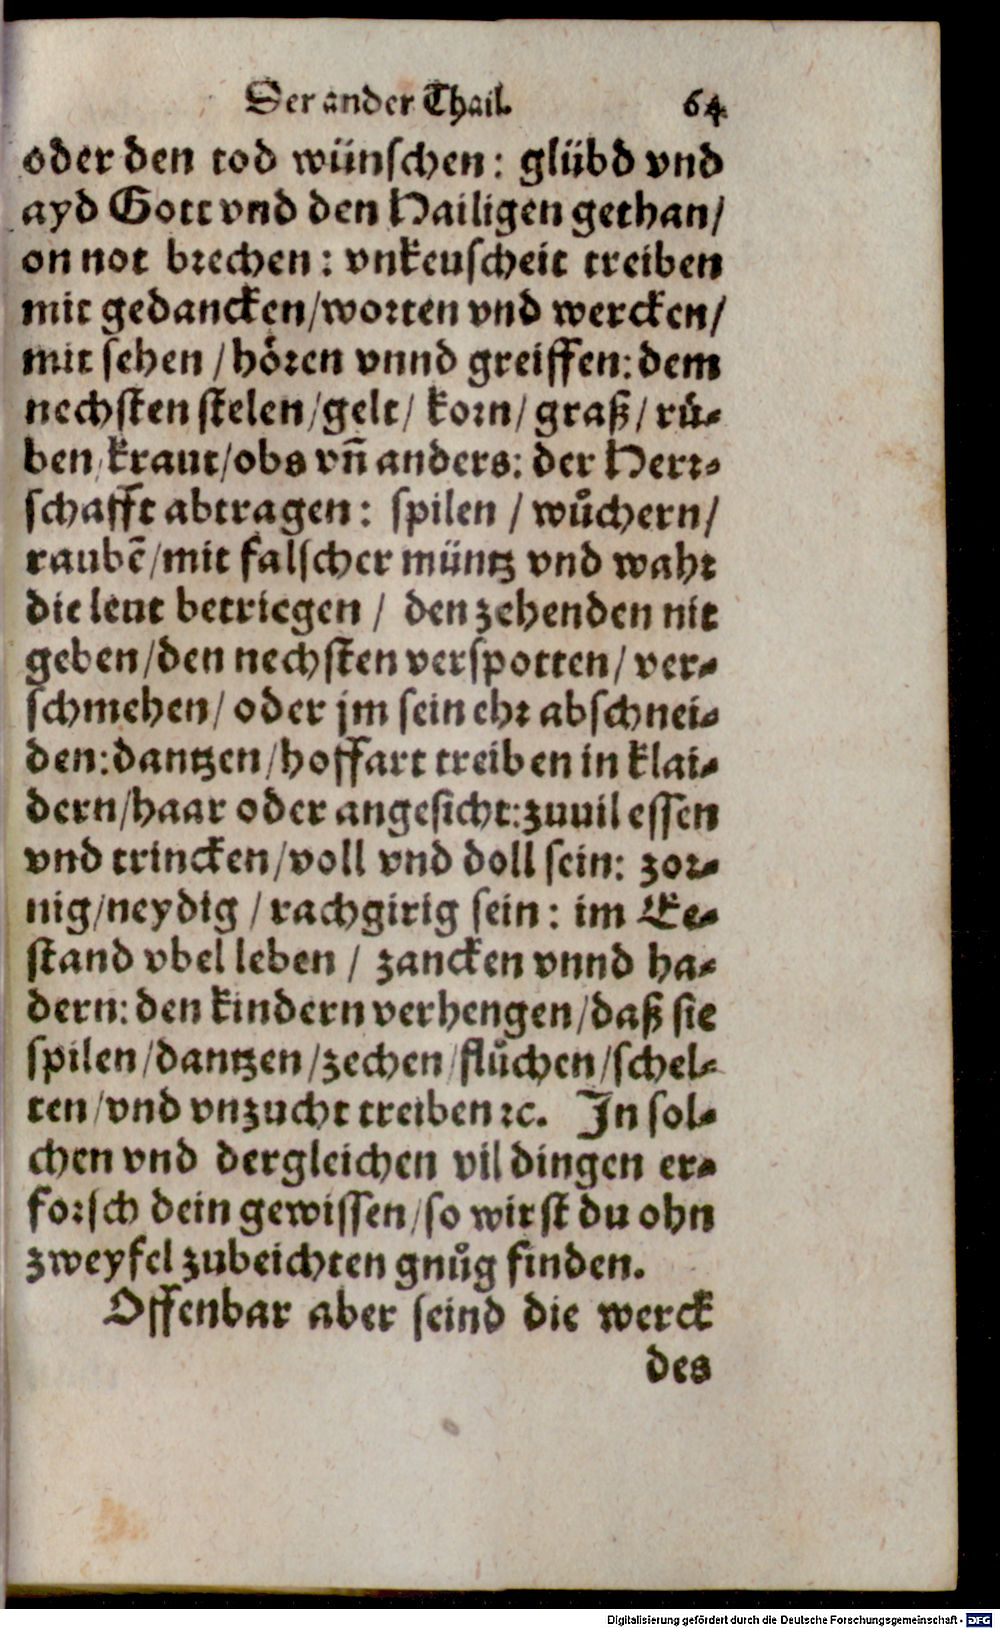 Der ander Thail. 64
oder den tod wünschen: glübd vnd
ayd Gott vnd den Hailigen gethan/
on not brechen: vnkeuscheit treiben
mit gedancken/worten vnd wercken/
mit sehen/hören vnnd greiffen: dem
nechsten stelen/gelt/korn/graß/rů-
ben/kraut/obs vñ anders: der Herr-
schafft abtragen: spilen/wůchern/
raubē/mit falscher müntz vnd wahr
die leut betriegen/den zehenden nit
geben/den nechsten verspotten/ver-
schmehen/oder jm sein ehr abschnei-
den: dantzen/hoffart treiben in klai-
dern/haar oder angesicht: zuuil essen
vnd trincken/voll vnd doll sein: zor-
nig/neydig/rachgirig sein: im Ee-
stand vbel leben/zancken vnnd ha-
dern: den kindern verhengen/daß sie
spilen/dantzen/zechen/flůchen/schel-
ten/vnd vnzucht treiben ꝛc. In sol-
chen vnd dergleichen vil dingen er-
forsch dein gewissen/so wirst du ohn
zweyfel zubeichten gnůg finden.
Offenbar aber seind die werck
des
Digitalisierung gefördert durch die Deutsche Forschungsgemeinschaft - DFG